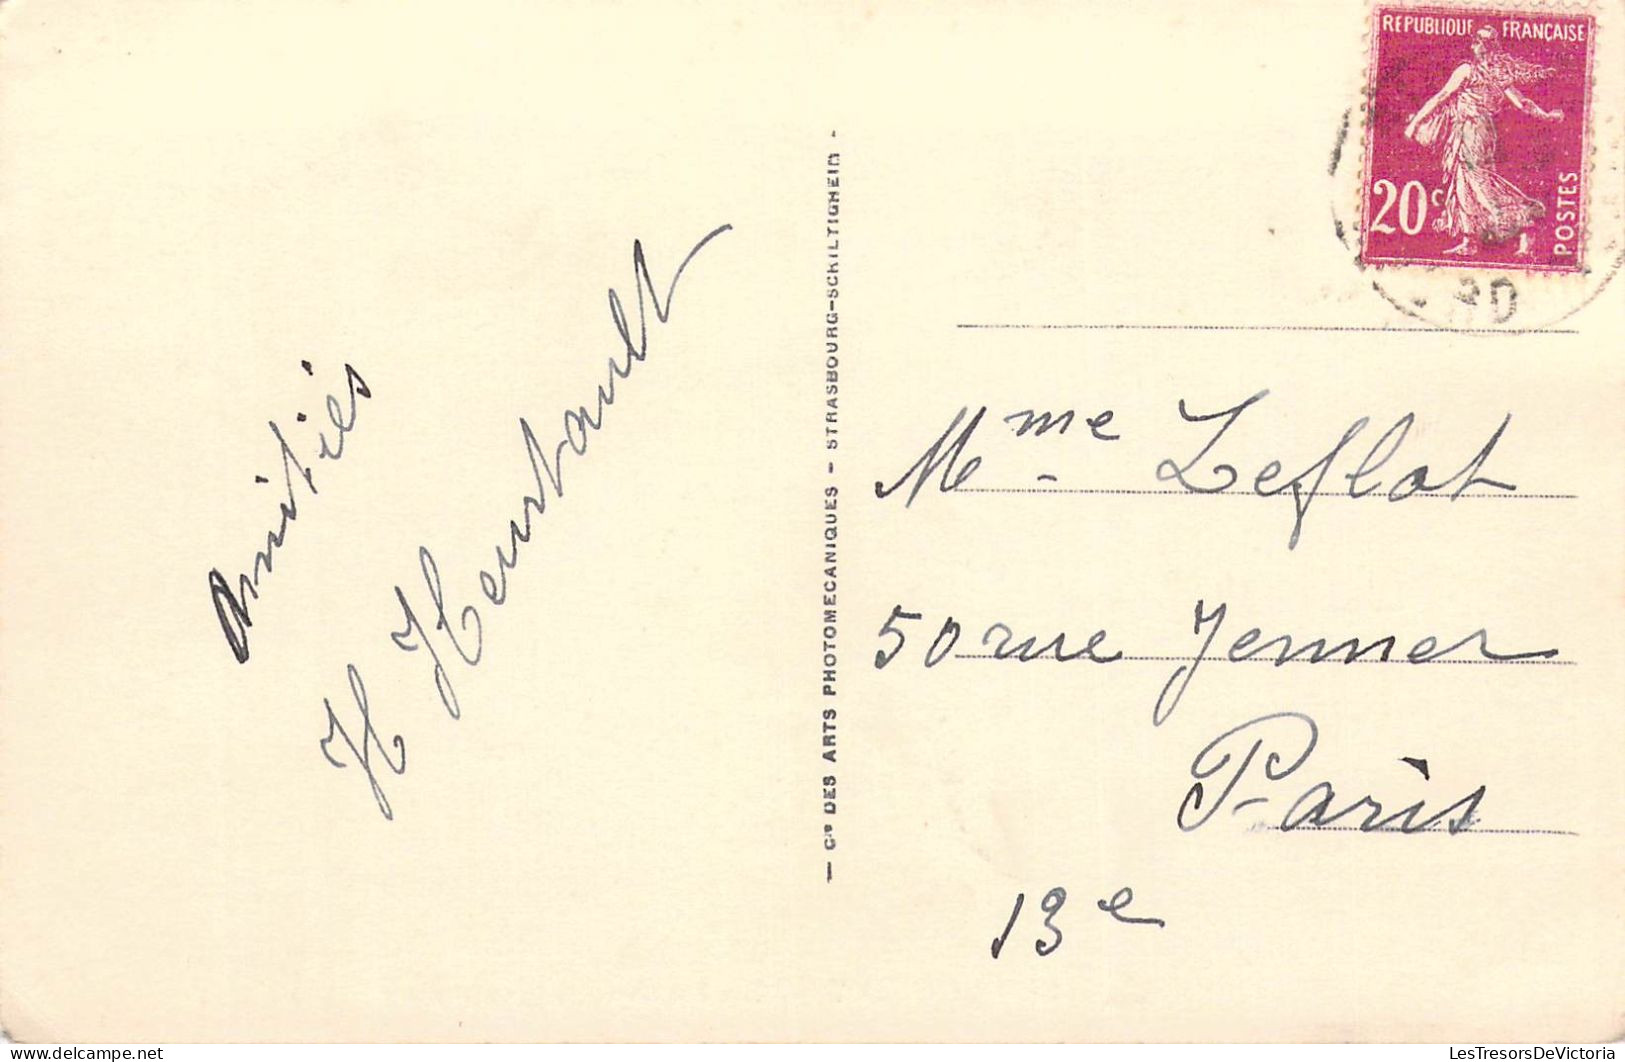 Amitiés
H Heurtault
— Cie DES ARTS PHOTOMECANIQUES - STRASBOURG-SCHILTIGHEIM -
REPUBLIQUE FRANÇAISE
20c
POSTES
RD
Mme Leflot
50 rue Jenner
Paris
13e
LesTresorsDeVictoria